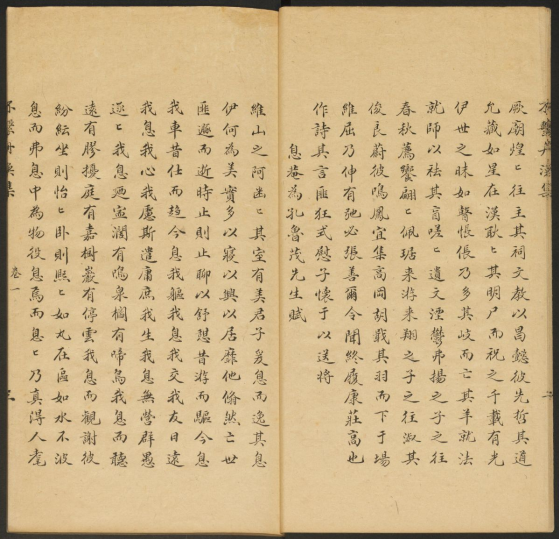 厥廟煌〻往主其祠文教以昌懿彼先哲其道
允藏如星在漢耿〻其明尸而祝之千載有光
伊世之昧如瞽倀倀乃多其岐而亡其羊就法
就師以祛其盲嗟〻遺文湮鬱弗揚之子之往
春秋薦饗翩〻佩琚来游来翔之子之往淑其
俊良蔚彼鳴鳳宜集高岡胡戢其羽而下于場
維屈乃伸有弛必張善爾令聞終履康莊高也
作詩其言匪狂式慰子懷于以送將
息菴為孔魯茂先生賦
維山之阿幽〻其室有美君子爰息而逸其息
伊何為美實多以寢以興以居靡他翛然亡世
匪遯而逝時止則止聊以舒憩昔游而驅今息
我車昔仕而趨今息我軀我息我交我友日遠
我息我心我慮斯遣庸庶我生我息無營群愚
逐〻我息廼寧澗有鳴泉樹有啼鳥我息而聽
遠有膠擾庭有嘉樹巖有停雲我息而觀謝彼
紛紜坐則怡〻卧則熙〻如丸在區如水不波
息而弗息中為物役息焉而息〻乃真得人耄
卷一
三